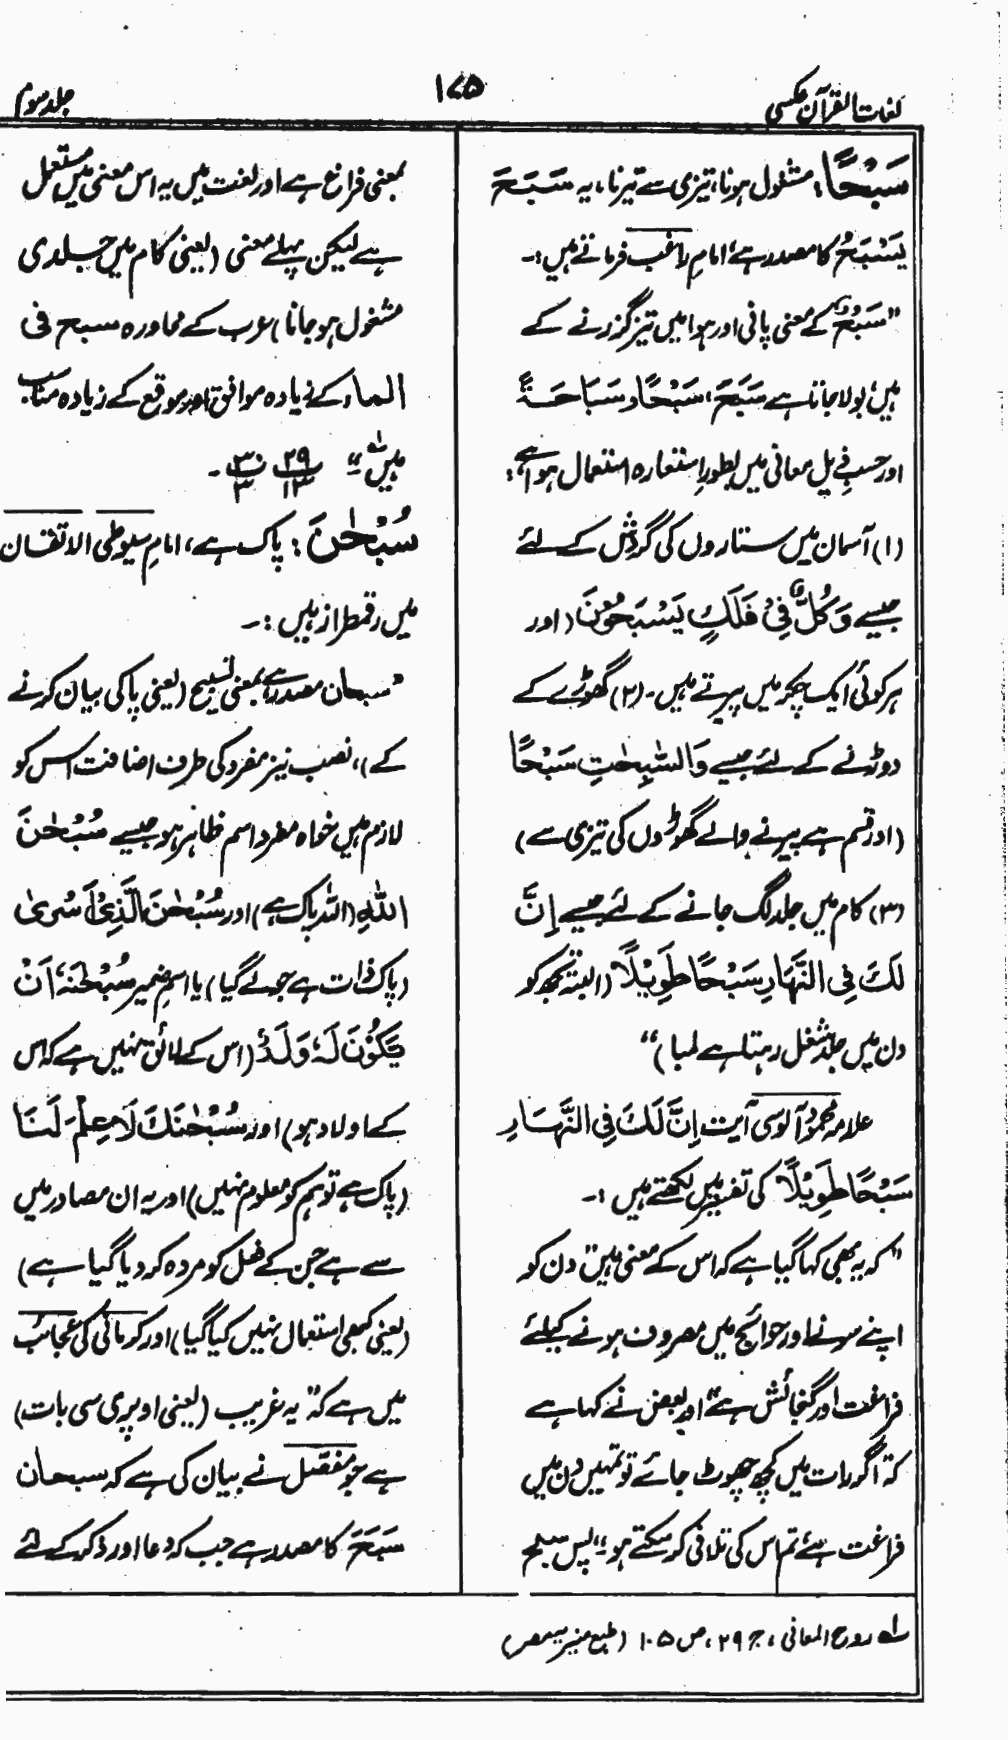 لغات القرآن عکسی
۱۷۵
جلد سوم
سَبْحًا: مشغول ہونا، تیزی سے تیرنا، یہ سَبَحَ
یَسْبَحُ کا مصدر ہے، امامِ راغب فرماتے ہیں:۔
"سَبْحٌ کے معنی پانی اور ہوا میں تیز گزرنے کے
ہیں، بولا جاتا ہے سَبَحَ، سَبْحًا و سَبَاحَۃً
اور حسبِ ذیل معانی میں بطورِ استعارہ استعمال ہوا ہے:
(۱) آسمان میں ستاروں کی گردش کے لئے
جیسے وَكُلٌّ فِیْ فَلَكٍ یَسْبَحُوْنَ (اور
ہر کوئی ایک چکر میں پیرتے ہیں۔ (۲) گھوڑے کے
دوڑنے کے لئے جیسے وَالسّٰبِحٰتِ سَبْحًا
(اور قسم ہے پیرنے والے گھوڑوں کی تیزی سے)
(۳) کام میں جلد لگ جانے کے لئے جیسے اِنَّ
لَكَ فِی النَّهَارِ سَبْحًا طَوِیْلًا (البتہ تجھ کو
دن میں جلد شغل رہتا ہے لمبا)"
علامہ محمود آلوسی آیت اِنَّ لَكَ فِی النَّهَارِ
سَبْحًا طَوِیْلًا کی تفسیر میں لکھتے ہیں:۔
"کہ یہ بھی کہا گیا ہے کہ اس کے معنی ہیں "دن کو
اپنے سونے اور حوائج میں مصروف ہونے کیلئے
فراغت اور گنجائش ہے" اور بعض نے کہا ہے
کہ "اگر رات میں کچھ چھوٹ جائے تو تمہیں دن میں
فراغت ہے تم اس کی تلافی کر سکتے ہو"۔ پس سبح
بمعنی فراغ ہے اور لغت میں یہ اس معنی میں مستعمل
ہے لیکن پہلے معنی (یعنی کام میں جلدی
مشغول ہو جانا) عرب کے محاورہ سبح فی
الماء کے زیادہ موافق اور موقع کے زیادہ مناسب
ہیں"۔ ؂۱ ۲۹/۱۳ ۳۰/۳۔
سُبْحٰنَ: پاک ہے، امامِ سیوطی الاتقان
میں رقمطراز ہیں:۔
"سبحان مصدر ہے بمعنی تسبیح (یعنی پاکی بیان کرنے
کے)، نصب نیز مفرد کی طرف اضافت اس کو
لازم ہیں خواہ مفرد اسم ظاہر ہو جیسے سُبْحٰنَ
اللّٰهِ (اللہ پاک ہے) اور سُبْحٰنَ الَّذِیْ اَسْرٰی
(پاک ذات ہے جو لے گیا) یا اسم ضمیر سُبْحٰنَهٗ اَنْ
یَّكُوْنَ لَهٗ وَلَدٌ (اس کے لائق نہیں ہے کہ اس
کے اولاد ہو) اور سُبْحٰنَكَ لَا عِلْمَ لَنَا
(پاک ہے تو ہم کو معلوم نہیں) اور یہ ان مصادر میں
سے ہے جن کے فعل کو مردہ کر دیا گیا ہے)
(یعنی کبھی استعمال نہیں کیا گیا) اور کرمانی کی عجائب
میں ہے کہ "یہ غریب (یعنی اوپری سی بات)
ہے جو مفصّل نے بیان کی ہے کہ سبحان
سَبَحَ کا مصدر ہے جب کہ دعا اور ذکر کے لئے
؂۱ روح المعانی، ج ۲۹، ص ۱۰۵ (طبع منیریہ مصر)